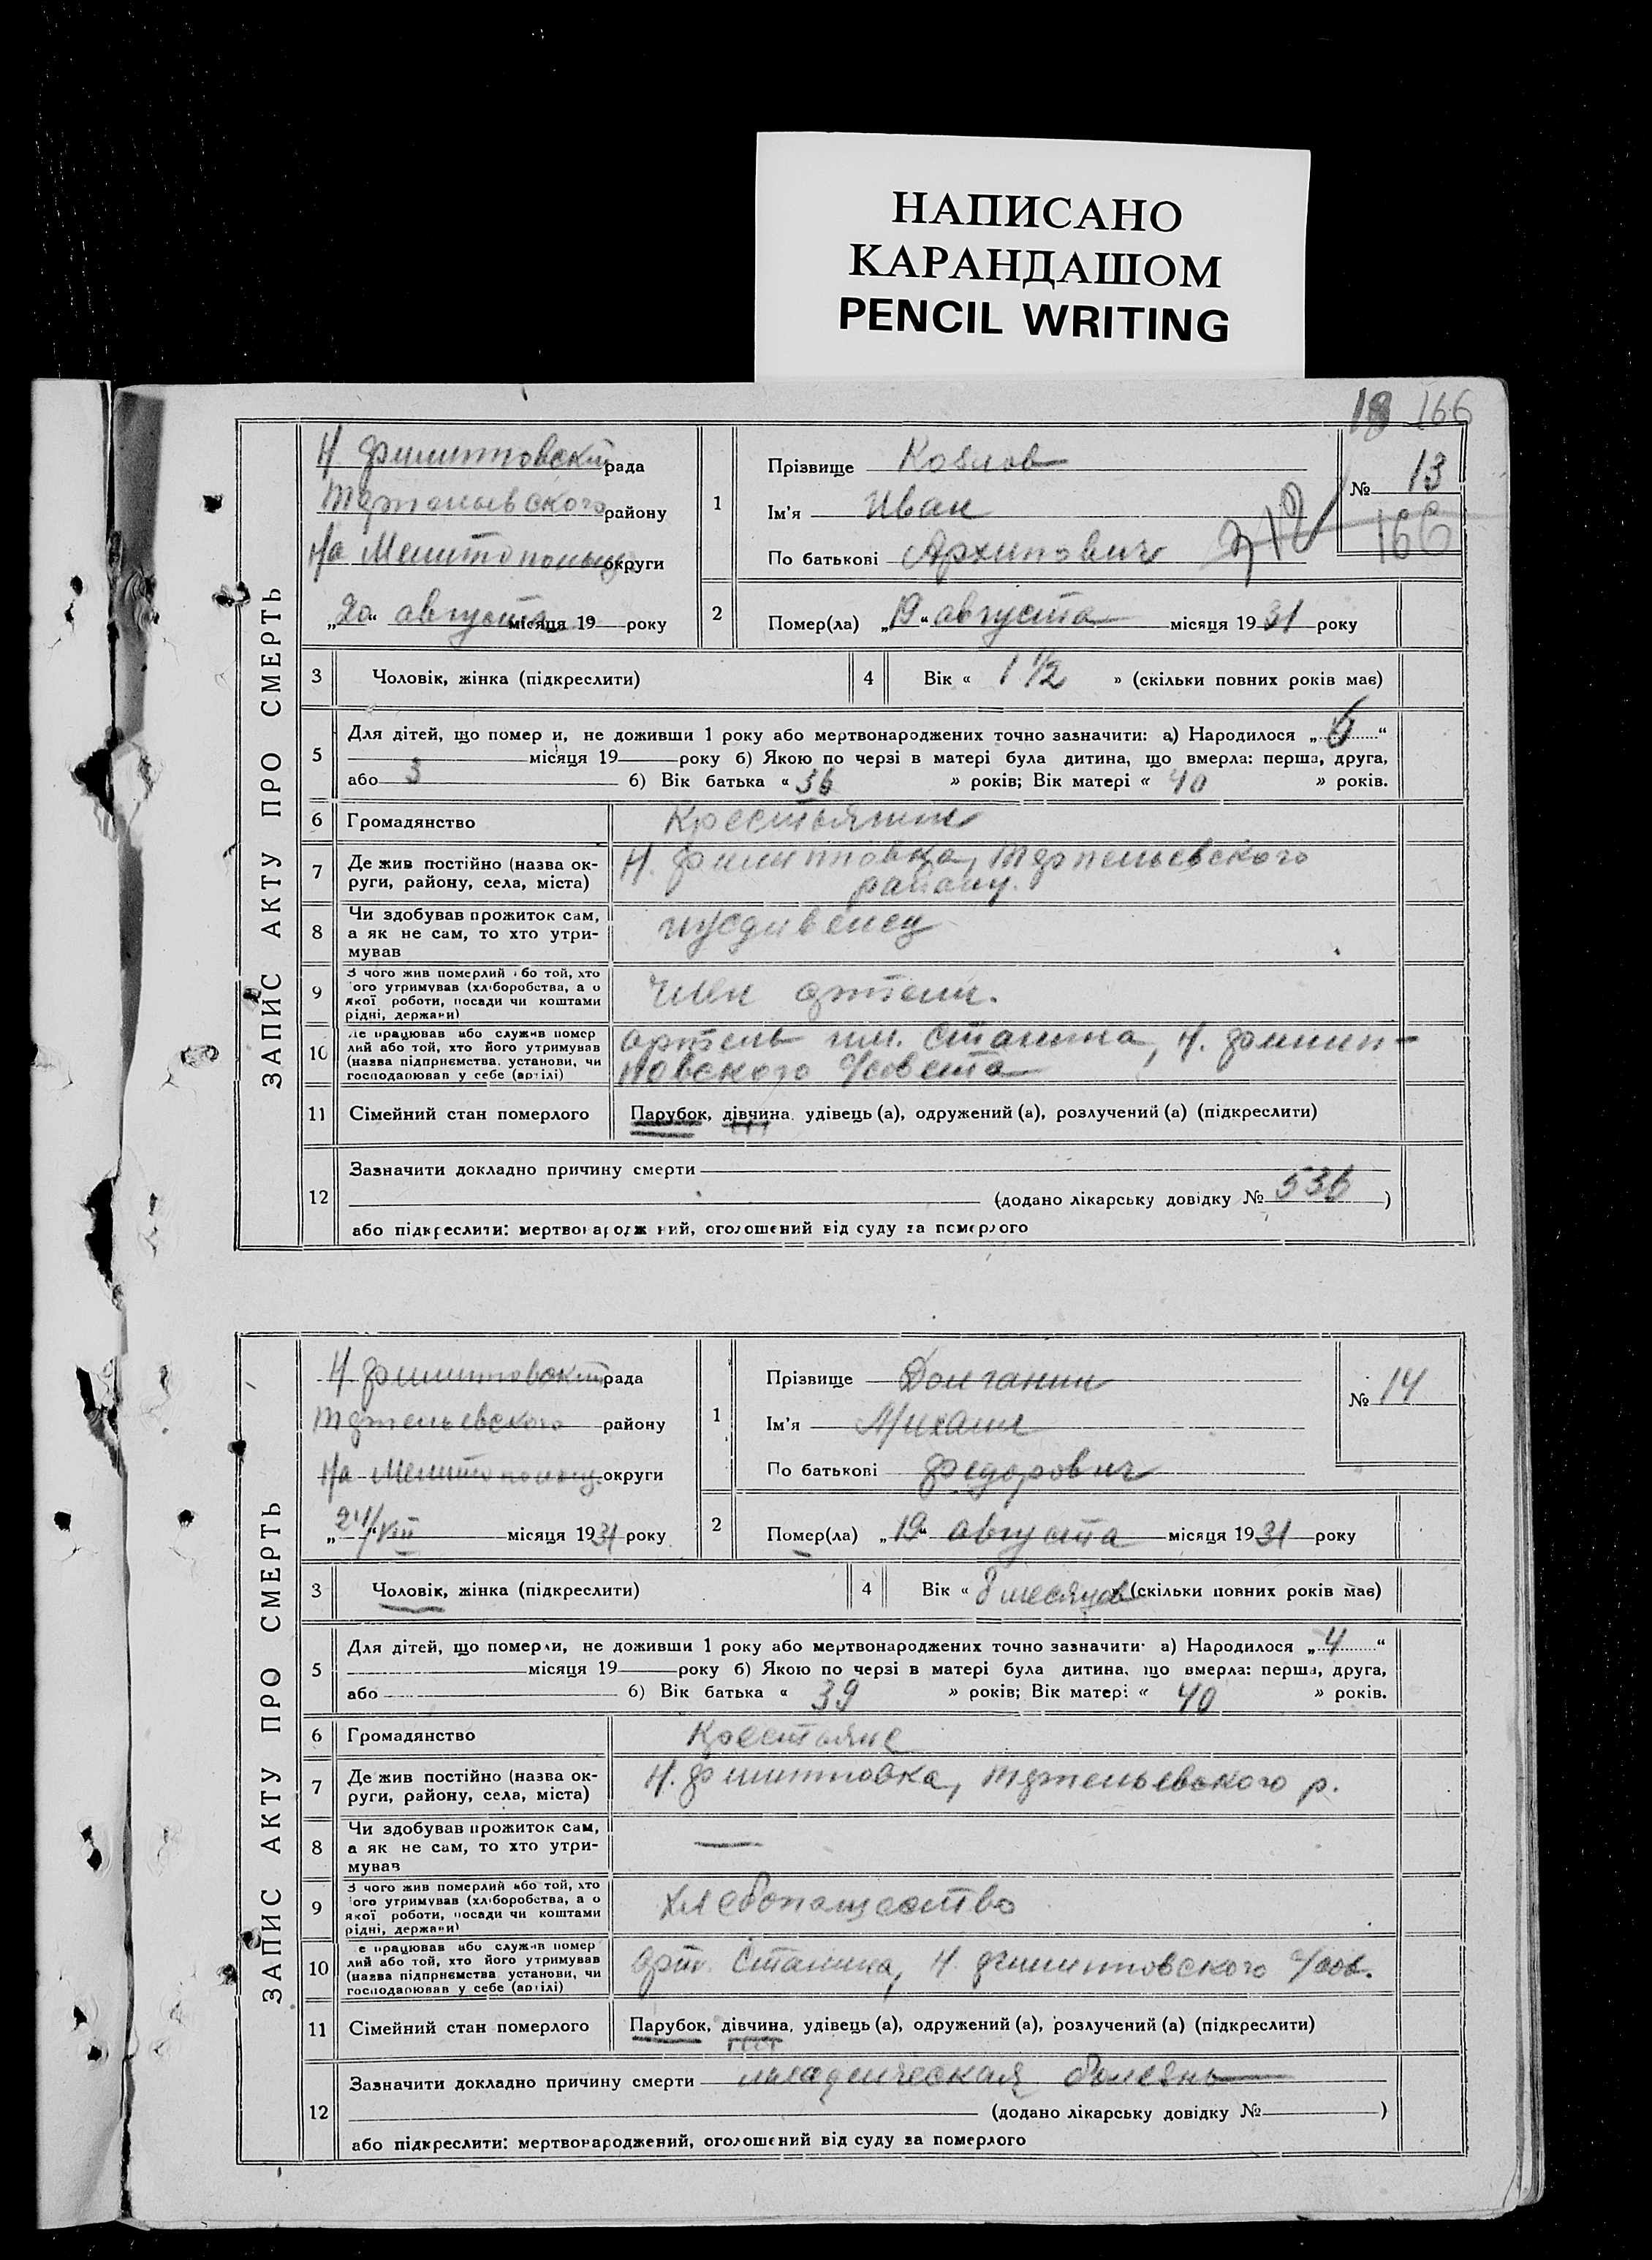 НАПИСАНО
КАРАНДАШОМ
PENCIL WRITING
18 166
ЗАПИС АКТУ ПРО СМЕРТЬ
Н. Филипповский рада
Терпеньевского району
н/а Мелитопольщ. округи
„20“ августа місяця 19 року
1
Прізвище Козлов
Ім'я Иван
По батькові Архипович
№ 13
318
166
2
Помер(ла) „19“ августа місяця 1931 року
3 Чоловік, жінка (підкреслити)
4 Вік « 1 1/2 » (скільки повних років має)
5
Для дітей, що померли, не доживши 1 року або мертвонароджених точно зазначити: а) Народилося „6“
місяця 19 року б) Якою по черзі в матері була дитина, що вмерла: перша, друга,
або 3 б) Вік батька «36» років; Вік матері «40» років.
6 Громадянство Крестьянин
7
Де жив постійно (назва ок-
руги, району, села, міста)
Н. Филипповка, Терпеньевского
району.
8
Чи здобував прожиток сам,
а як не сам, то хто утри-
мував
иждивенец
9
З чого жив померлий або той, хто
його утримував (хліборобства, а о
якої роботи, посади чи коштами
рідні, держави)
Член артели.
10
Де працював або служив помер
лий або той, хто його утримував
(назва підприємства, установи, чи
господарював у себе (артілі)
артель им. Сталина, Н. Филип-
повского с/совета
11 Сімейний стан померлого Парубок, дівчина, удівець (а), одружений (а), розлучений (а) (підкреслити)
12
Зазначити докладно причину смерти
(додано лікарську довідку № 536)
або підкреслити: мертвонароджений, оголошений від суду за померлого
ЗАПИС АКТУ ПРО СМЕРТЬ
Н Филипповский рада
Терпеньевского району
н/а Мелитопольщ. округи
„24/VIII місяця 1931 року
1
Прізвище Долганин
Ім'я Михаил
По батькові Федорович
№ 14
2
Помер(ла) „19“ августа місяця 1931 року
3 Чоловік, жінка (підкреслити)
4 Вік « 8 месяцов (скільки повних років має)
5
Для дітей, що померли, не доживши 1 року або мертвонароджених точно зазначити: а) Народилося „4“
місяця 19 року б) Якою по черзі в матері була дитина, що вмерла: перша, друга,
або б) Вік батька « 39 » років; Вік матері « 40 » років.
6 Громадянство Крестьяне
7
Де жив постійно (назва ок-
руги, району, села, міста)
Н. Филипповка, Терпеньевского р.
8
Чи здобував прожиток сам,
а як не сам, то хто утри-
мував
—
9
З чого жив померлий або той, хто
його утримував (хліборобства, а о
якої роботи, посади чи коштами
рідні, держави)
Хлебопашество
10
Де працював або служив помер
лий або той, хто його утримував
(назва підприємства установи, чи
господарював у себе (артілі)
арт. Сталина, Н. Филипповского с/сов.
11 Сімейний стан померлого Парубок, дівчина, удівець (а), одружений (а), розлучений (а) (підкреслити)
12
Зазначити докладно причину смерти младенческая болезнь
(додано лікарську довідку № )
або підкреслити: мертвонароджений, оголошений від суду за померлого